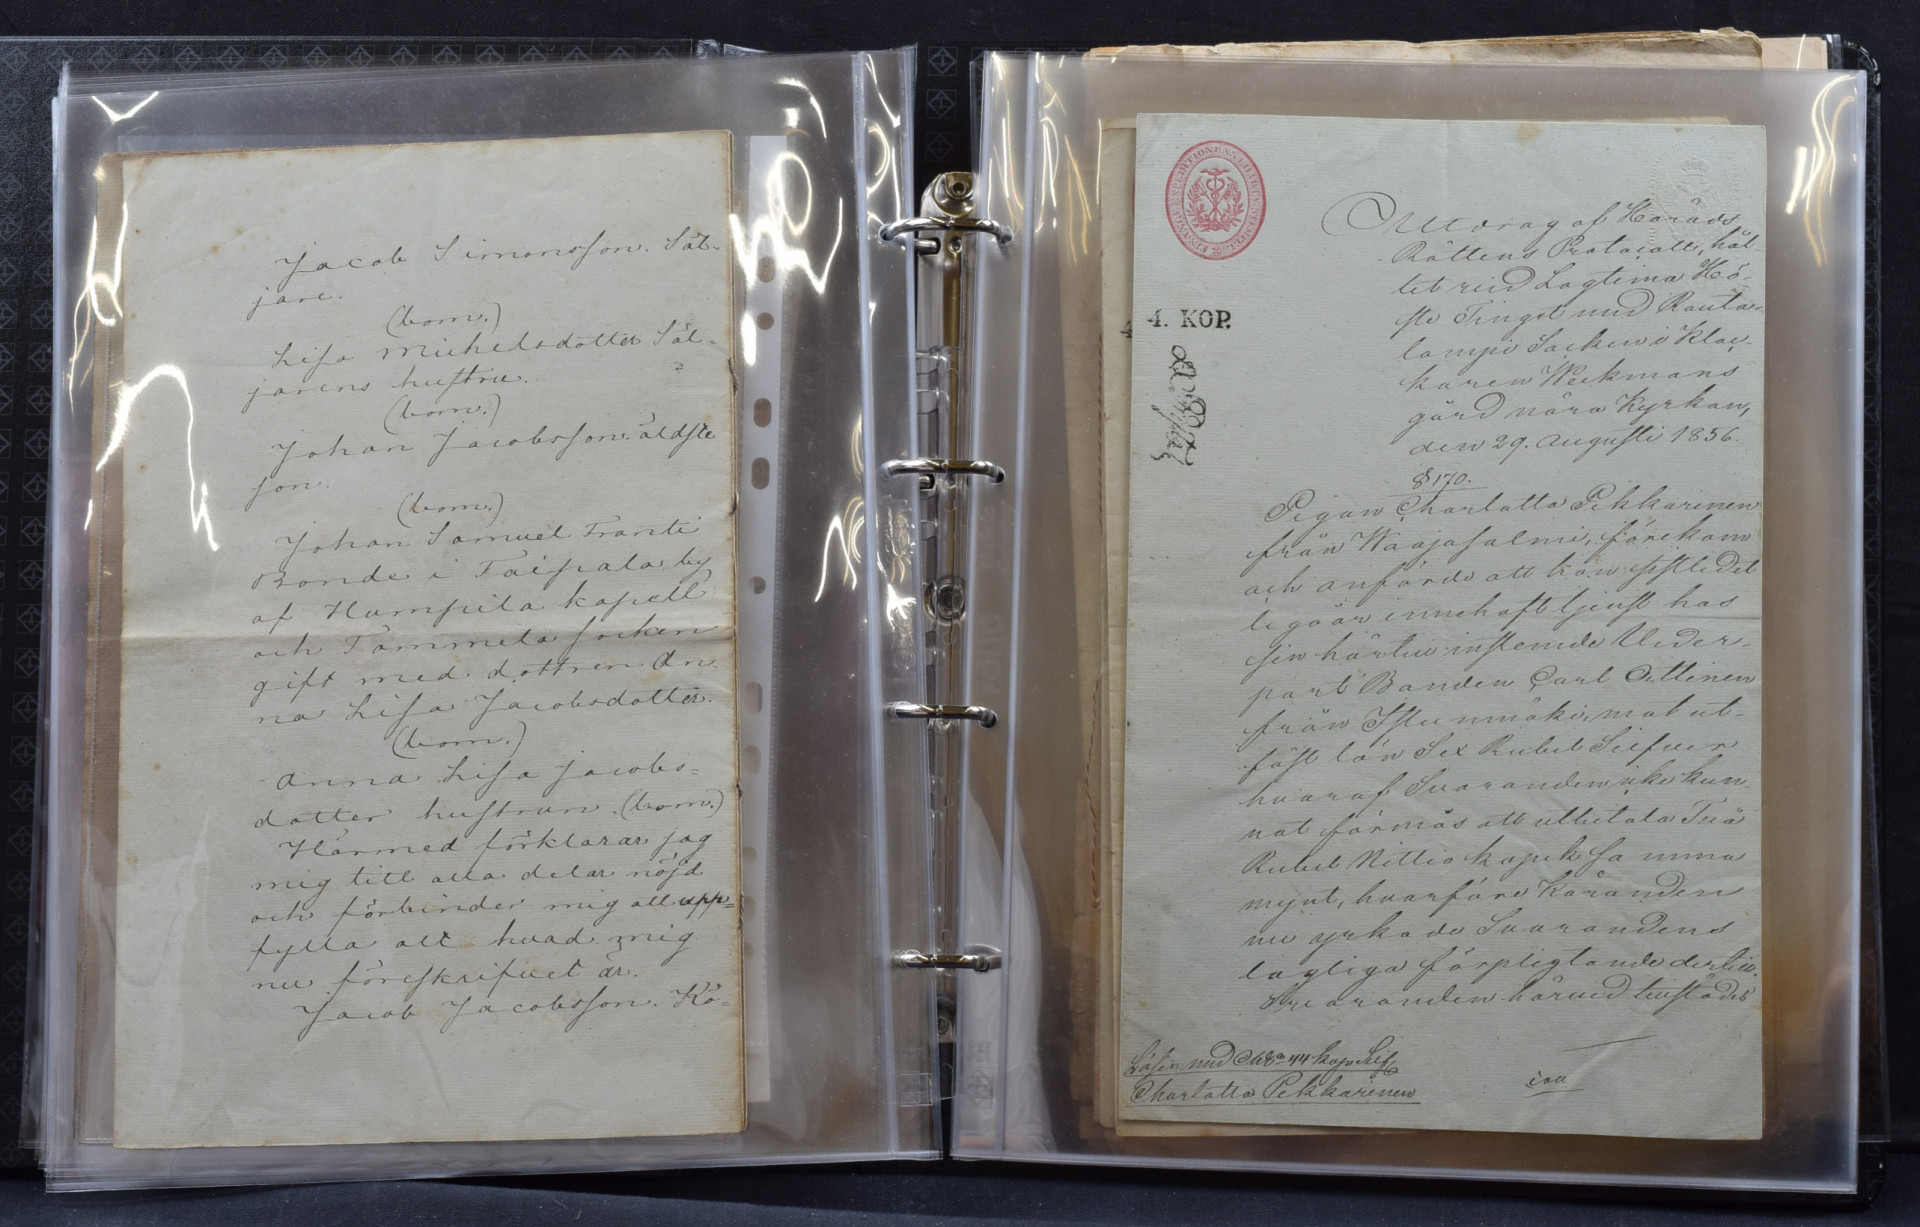 Jacob Simonsson. Säl-
jare.
(bom.)
Lisa Michelsdotter Säl-
jarens hustru.
(bom.)
Johan Jacobsson äldste
son.
(bom.)
Johan Samuel Franti
Bonde i Taipala by
af Humpila kapell
och Tammela socken
gift med dottren An-
na Lisa Jacobsdotter.
(bom.)
Anna Lisa Jacobs=
dotter hustrun. (bom.)
Härmed förklarar jag
mig till alla delar nöjd
och förbinder mig att upp=
fylla allt hvad mig
nu föreskrifvet är.
Jacob Jacobsson. Kö=
FINANCE EXPEDITIONENS
4. KOP.
Utdrag af Härads
Rättens Protocoll, hål-
let vid Lagtima Hö-
ste Tinget med Rauta-
lampi Socken i Kloc-
karen Weckmans
gård nära Kyrkan,
den 29. Augusti 1856.
§ 170.
Pigan Charlotta Pekkarinen
från Waajasalmi, förekom
och anförde att hon sistledet
legoår innehaft tjenst hos
sin härtill instemde Veder-
part Bonden Carl Oittinen
från Istunmäki, mot ut-
fäst lön Sex Rubel Silfver
hvaraf Svaranden icke kun-
nat förmås att utbetala Två
Rubel Nittio kopek samma
mynt, hvarföre Käranden
nu yrkade Svarandens
lagliga förpligtande dertill.
Svaranden härvid tillstädes
Lösen med 44 kop. Silf
Charlotta Pekkarinen